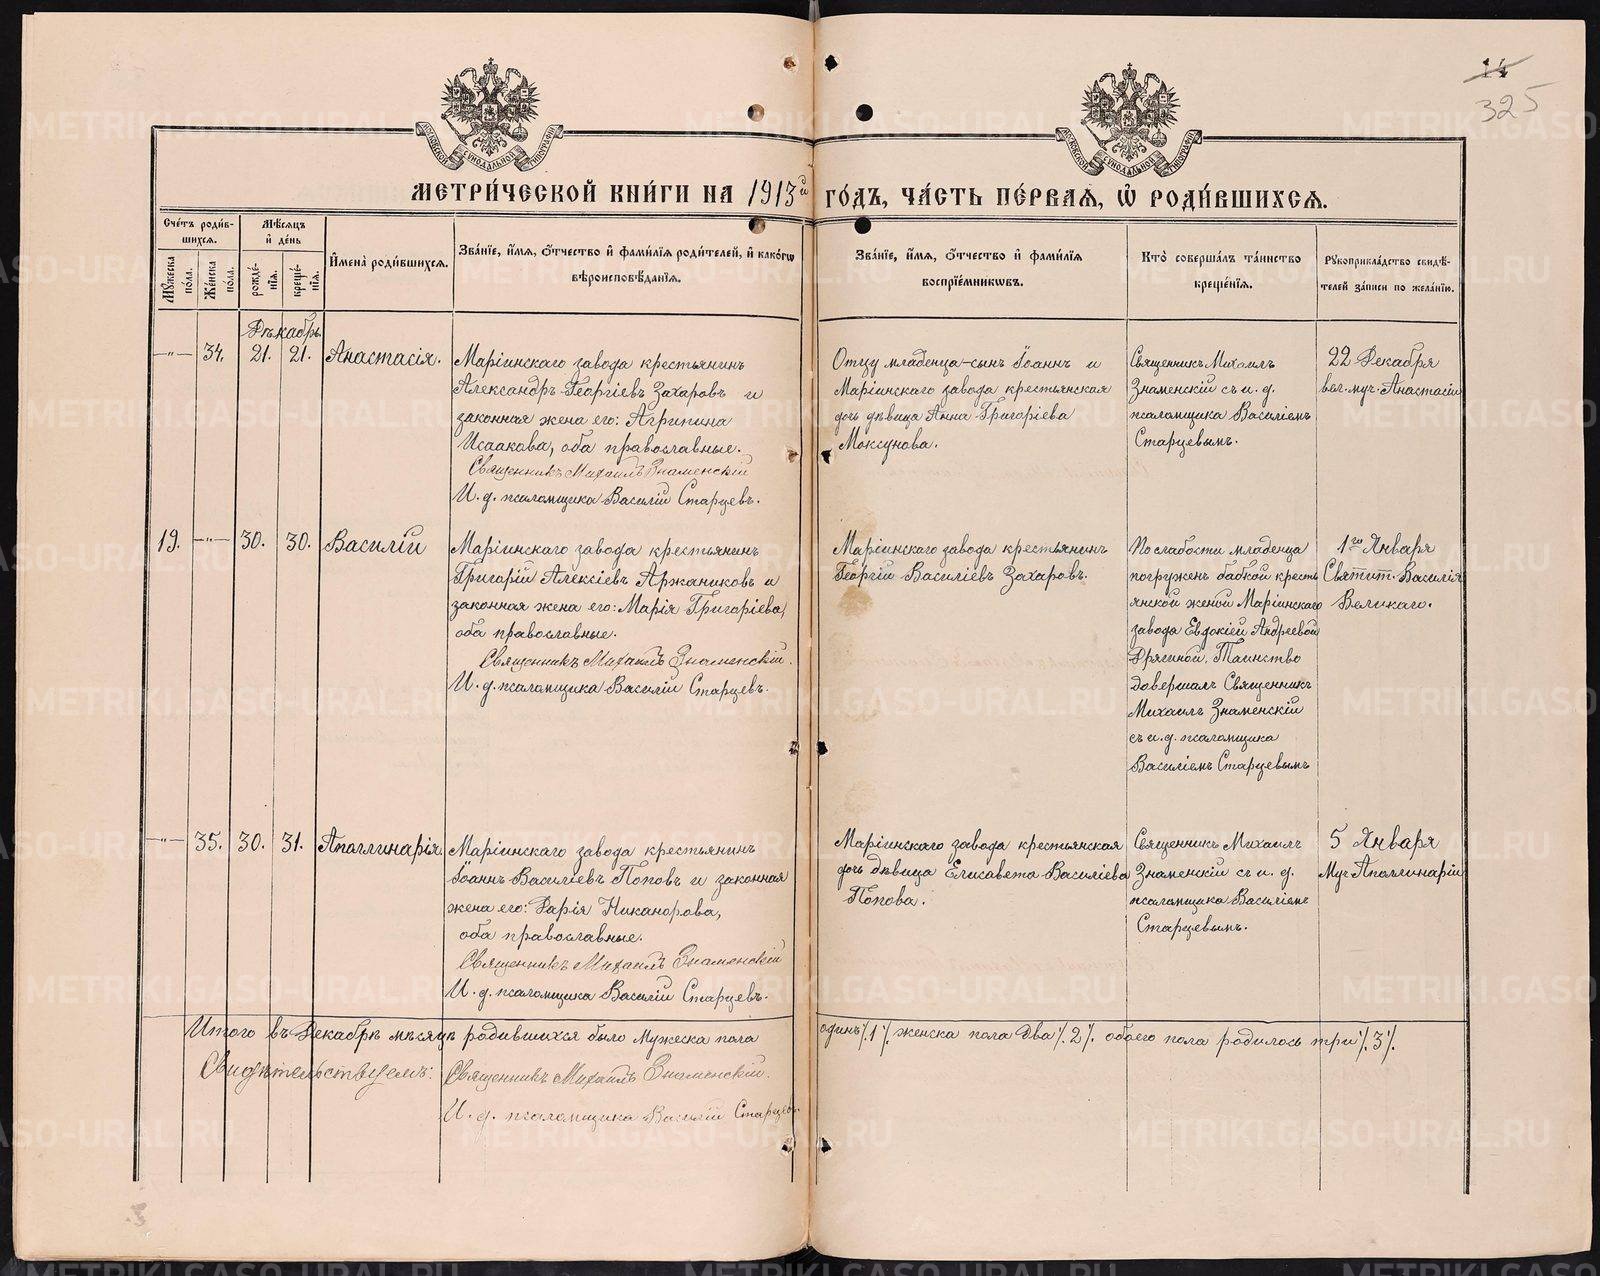 14
325
МОСКОВСКОЙ СѴНОДАЛЬНОЙ ТИПОГРАФІИ
МОСКОВСКОЙ СѴНОДАЛЬНОЙ ТИПОГРАФІИ
МЕТРИ́ЧЕСКОЙ КНИ́ГИ НА 1913й ГО́ДЪ, ЧА́СТЬ ПЕ́РВАѦ, Ѡ҆ РОДИ́ВШИХСѦ.
Сче́тъ роди́в-
шихсѧ.
Мꙋ́жеска
по́ла.
Же́нска
по́ла.
Мѣ́сѧцъ
и҆ де́нь
рожде́-
нїѧ.
креще́-
нїѧ.
И҆мена̀ роди́вшихсѧ.
Зва́нїе, и҆́мѧ, ѻ҆́тчество и҆ фами́лїѧ роди́телей, и҆ како́гѡ
вѣроисповѣ́данїѧ.
Зва́нїе, и҆́мѧ, ѻ҆́тчество и҆ фами́лїѧ
воспрїе́мникѡвъ.
Кто̀ соверша́лъ та́инство
креще́нїѧ.
Рꙋкоприкла́дство свидѣ́-
телей за́писи по жела́нїю.
Декабрь
—„— 34. 21. 21. Анастасія.
Маріинскаго завода крестьянинъ
Александръ Георгіевъ Захаровъ и
законная жена его: Агрипина
Исаакова, оба православные.
Священникъ Михаилъ Знаменскій
И. д. псаломщика Василій Старцевъ.
Отцу младенца-сынъ Іоаннъ и
Маріинскаго завода крестьянская
дочь дѣвица Анна Григоріева
Моксунова.
Священникъ Михаилъ
Знаменскій съ и. д.
псаломщика Василіемъ
Старцевымъ.
22 Декабря
вел. муч. Анастасіи
19. —„— 30. 30. Василій
Маріинскаго завода крестьянинъ
Григорій Алексіевъ Аржаниковъ и
законная жена его: Марія Григоріева,
оба православные.
Священникъ Михаилъ Знаменскій.
И. д. псаломщика Василій Старцевъ.
Маріинскаго завода крестьянинъ
Георгій Василіевъ Захаровъ.
По слабости младенца
погруженъ бабкой кресть
янской женой Маріинскаго
завода Евдокіей Андреевой
Дрягиной. Таинство
довершалъ Священникъ
Михаилъ Знаменскій
съ и. д. псаломщика
Василіемъ Старцевымъ
1го Января
Святит. Василія
Великаго.
—„— 35. 30. 31. Аполлинарія
Маріинскаго завода крестьянинъ
Іоаннъ Василіевъ Поповъ и законная
жена его: Дарія Никанорова,
оба православные.
Священникъ Михаилъ Знаменскій
И. д. псаломщика Василій Старцевъ.
Маріинскаго завода крестьянская
дочь дѣвица Елисавета Василіева
Попова.
Священникъ Михаилъ
Знаменскій съ и. д.
псаломщика Василіемъ
Старцевымъ.
5 Января
Муч Аполлинаріи
Итого въ Декабрѣ мѣсяцѣ родившихся было Мужеска пола одинъ /.1./ женска пола два /.2./. обоего пола родилось три /.3./.
Свидѣтельствуемъ: Священникъ Михаилъ Знаменскій.
И. д. псаломщика Василій Старцевъ.
METRIKI.GASO-URAL.RU